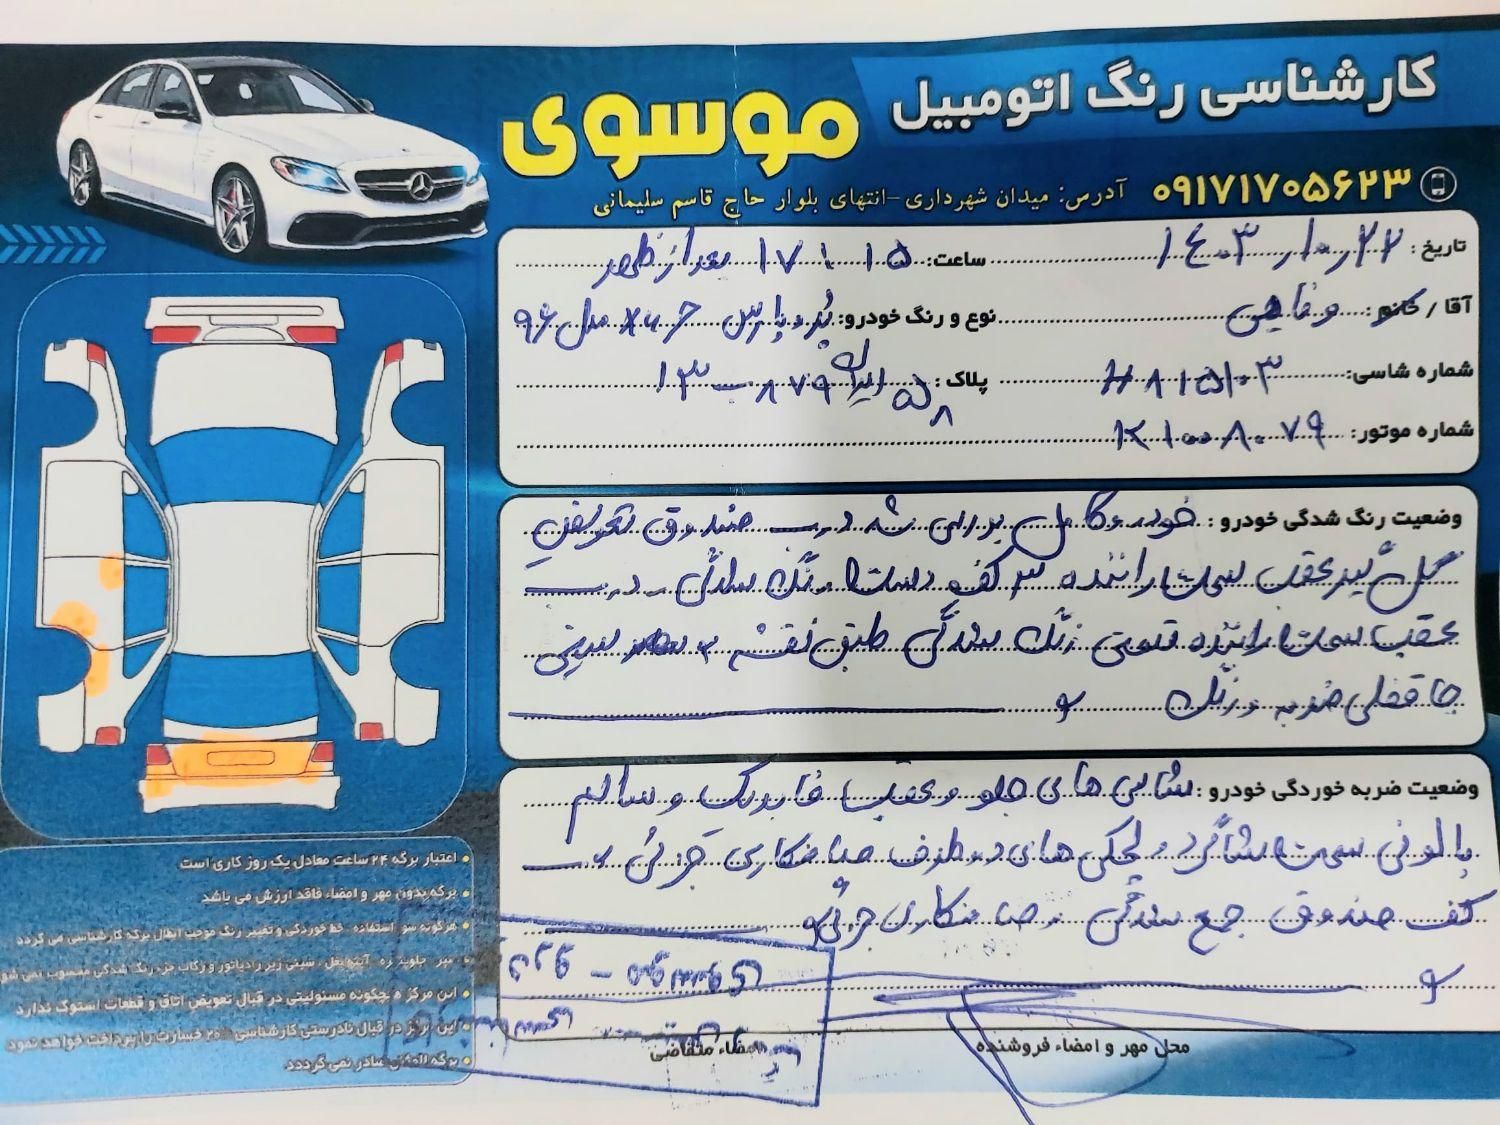 کارشناسی رنگ اتومبیل موسوی
۰۹۱۷۱۷۰۵۶۲۳ آدرس: میدان شهرداری-انتهای بلوار حاج قاسم سلیمانی
تاریخ: ۱۴۰۳/۱۰/۲۲ ساعت: ۱۷:۱۵ بعد از ظهر
آقا / خانم: وفایی نوع و رنگ خودرو: پژو پارس مدل ۹۶
شماره شاسی: H۸۱۵۱۰۳ پلاک: ۱۳ ب ۸۷۹ ایران
شماره موتور: ۱۲۱۰۰۸۰۷۹
وضعیت رنگ شدگی خودرو: خودرو کامل بررسی شد درب صندوق تعویض
گلگیر عقب سمت راننده ۳ کف دست رنگ شدگی درب
عقب سمت راننده قسمتی رنگ شدگی طبق نقشه سینی
جا قفلی ضربه و رنگ
وضعیت ضربه خوردگی خودرو: شاسی های جلو و عقب فابریک و سالم
پالونی سمت شاگرد و لچکی های دو طرف صافکاری جزئی
کف صندوق جمع شدگی و صافکاری جزئی
محل مهر و امضاء فروشنده
امضاء متقاضی
اعتبار برگه ۲۴ ساعت معادل یک روز کاری است
برگه بدون مهر و امضاء فاقد ارزش می باشد
هرگونه سوء استفاده، خط خوردگی و تغییر رنگ موجب ابطال برگه کارشناسی می گردد
سپر جلو، آینه بغل، سینی زیر رادیاتور و رکاب جزء رنگ شدگی محسوب نمی شود
این مرکز هیچگونه مسئولیتی در قبال تعویض اتاق و قطعات استوک ندارد
این مرکز در قبال نادرستی کارشناسی ۲۰٪ خسارت را پرداخت خواهد نمود
برگه المثنی صادر نمی گردد